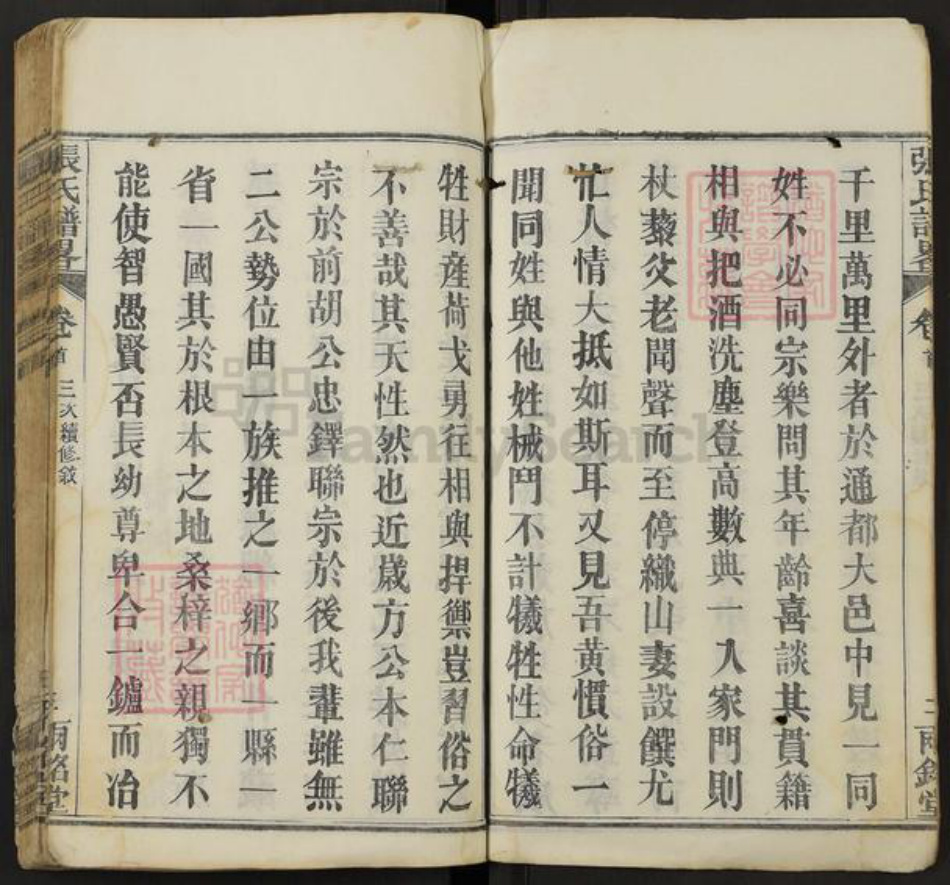 千里萬里外者於通都大邑中見一同
姓不必同宗樂問其年齡喜談其貫籍
相與把酒洗塵登高數典一入家門則
杖藜父老聞聲而至停織山妻設饌尤
忙人情大抵如斯耳又見吾黃慣俗一
聞同姓與他姓械鬥不計犧牲性命犧
牲財產荷戈勇往相與捍禦豈習俗之
不善哉其天性然也近歲方公本仁聯
宗於前胡公忠鐸聯宗於後我輩雖無
二公勢位由一族推之一鄉而一縣一
省一國其於根本之地桑梓之親獨不
能使智愚賢否長幼尊卑合一鑪而冶
張氏譜畧
卷首
三次續修敘
FamilySearch